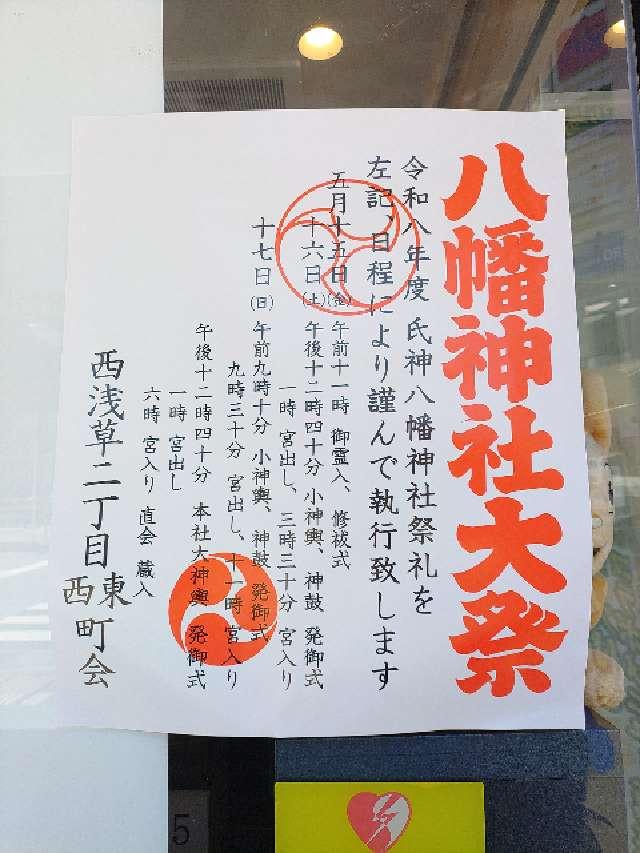 八幡神社大祭
令和八年度 氏神八幡神社祭礼を
左記、日程により謹んで執行致します
五月十五日(金) 午前十一時 御霊入、修祓式
十六日(土) 午後十二時四十分 小神輿、神鼓 発御式
一時 宮出し、三時三十分 宮入り
十七日(日) 午前九時十分 小神輿、神鼓 発御式
九時三十分 宮出し、十一時 宮入り
午後十二時四十分 本社大神輿 発御式
一時 宮出し
六時 宮入り 直会 蔵入
西浅草二丁目 東西町会
5